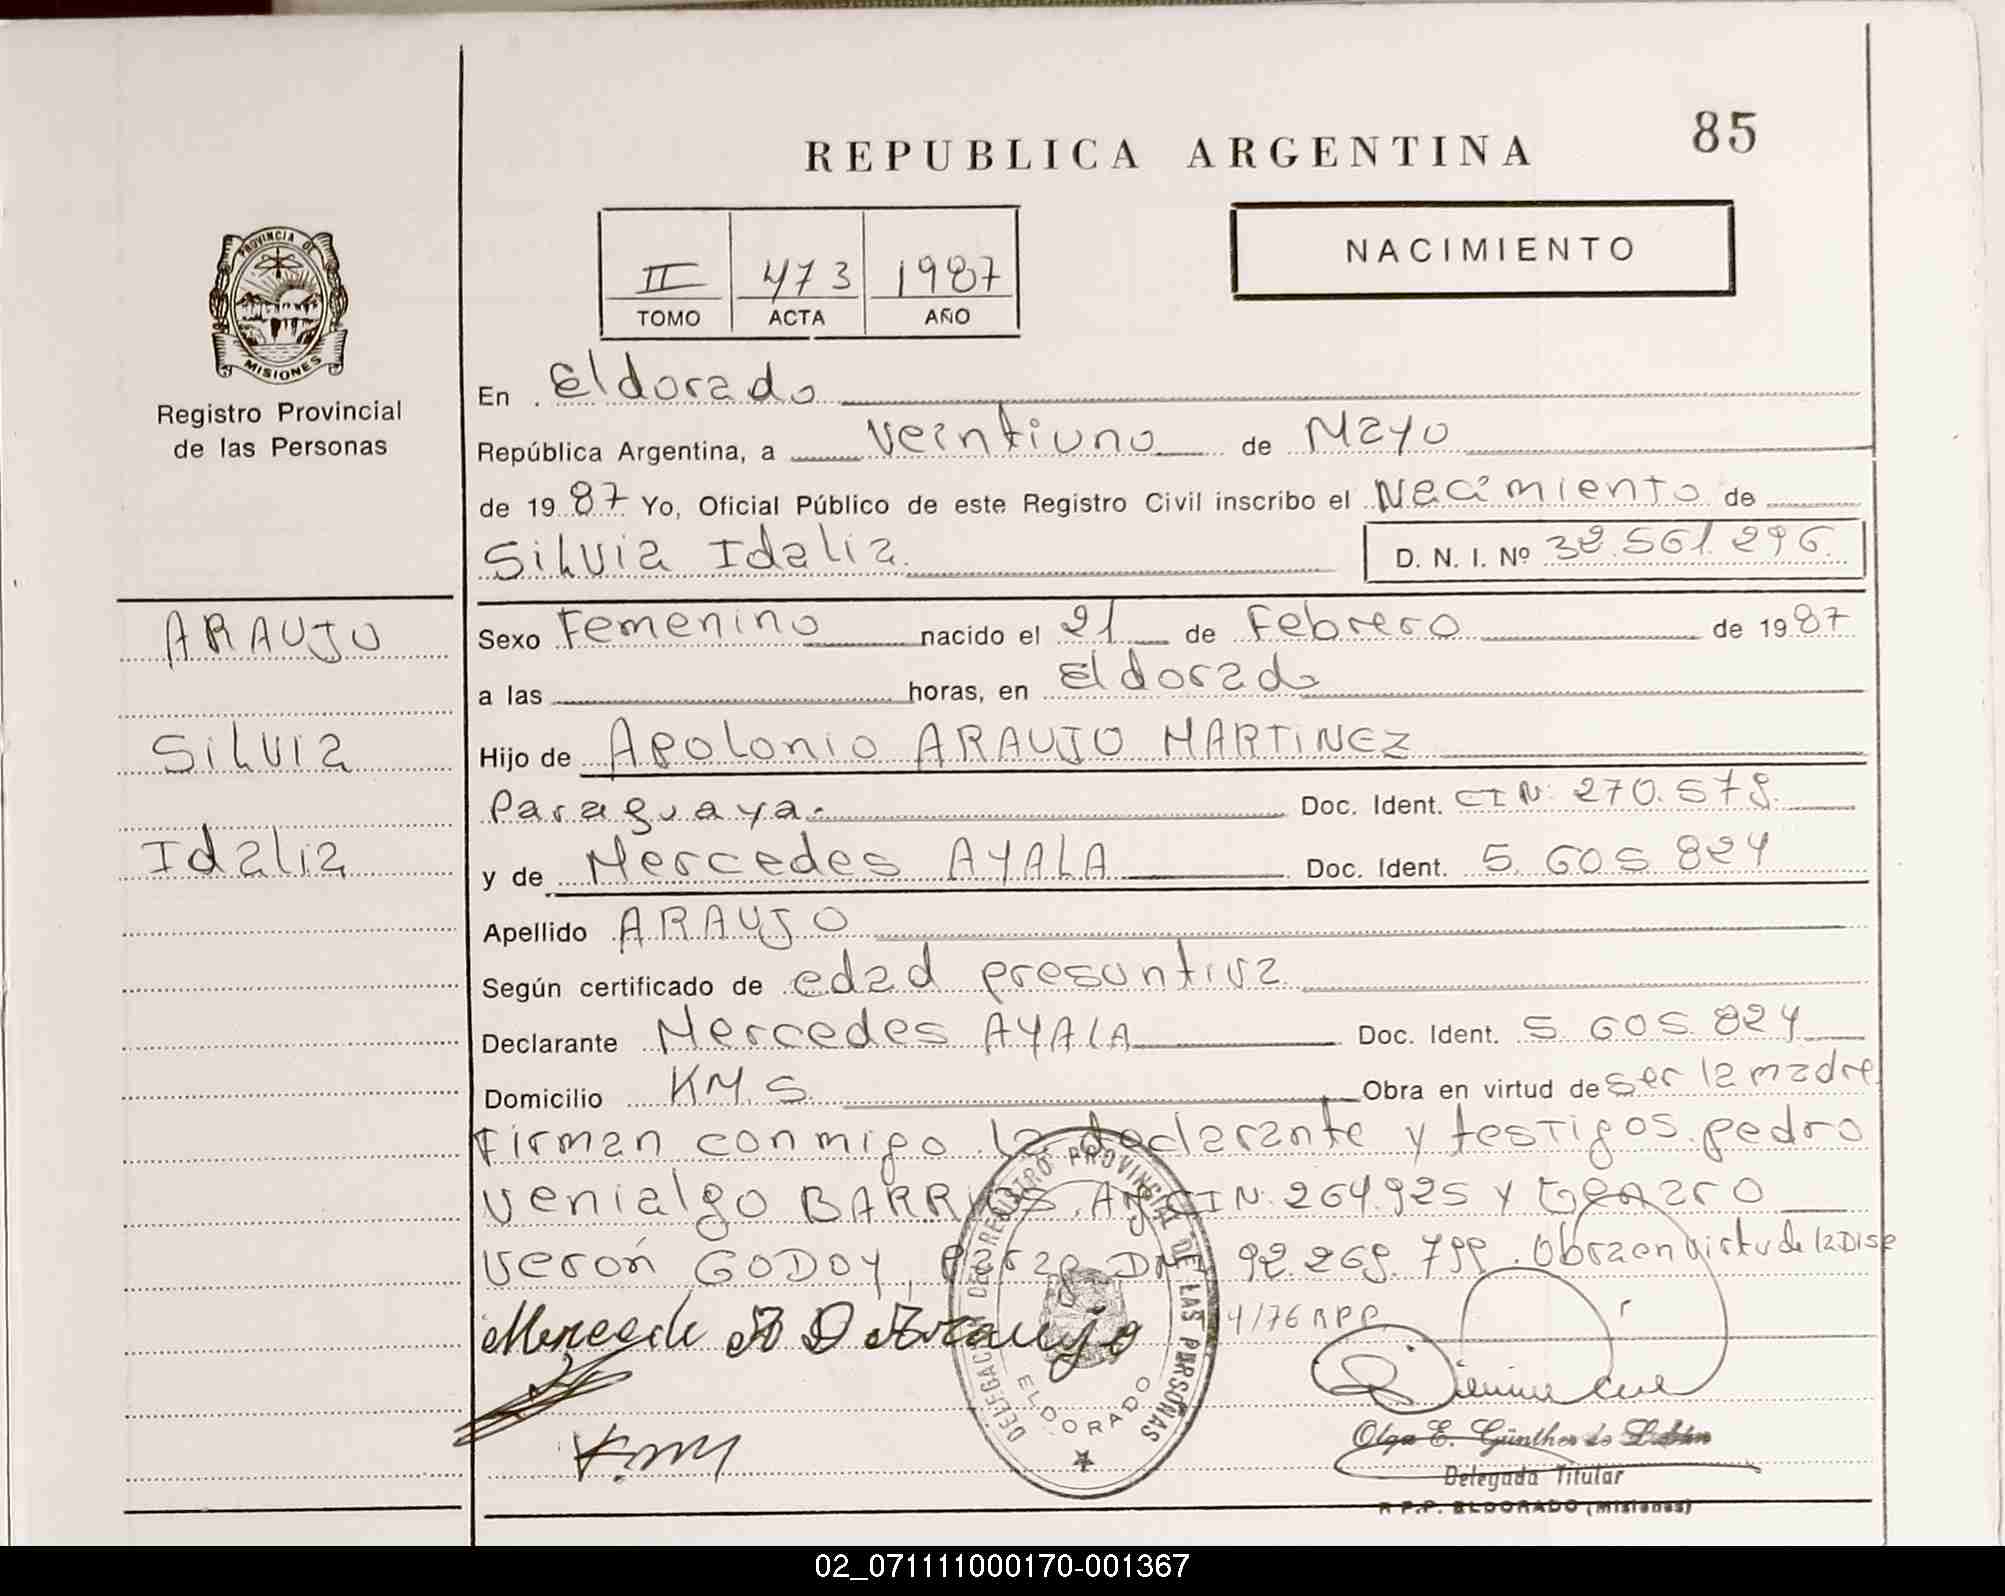 REPUBLICA ARGENTINA
85
NACIMIENTO
II 473 1987
TOMO ACTA AÑO
PROVINCIA DE
MISIONES
Registro Provincial
de las Personas
ARAUJO
Silvia
Idalia
En Eldorado
República Argentina, a veintiuno de Mayo
de 1987 Yo, Oficial Público de este Registro Civil inscribo el Nacimiento de
Silvia Idalia
D. N. I. Nº 32.561.296
Sexo Femenino nacido el 21 de Febrero de 1987
a las horas, en Eldorado
Hijo de Apolonio ARAUJO MARTINEZ
Paraguaya. Doc. Ident. CI N: 270.579.
y de Mercedes AYALA Doc. Ident. 5.605.824
Apellido ARAUJO
Según certificado de edad presuntiva
Declarante Mercedes AYALA Doc. Ident. 5.605.824
Domicilio KM. 5. Obra en virtud de ser la madre
Firman conmigo la declarante y testigos. pedro
venialgo BARRIOS. Arg CI N: 264.925 y Genaro
verón GODOY, Parag. DNI 92.269.799. Obra en virtud de la Disp
4/76 RPP
DELEGACION DEL REGISTRO PROVINCIAL DE LAS PERSONAS
ELDORADO
Olga E. Günther de
Delegada Titular
R.P.P. ELDORADO (Misiones)
02_071111000170-001367